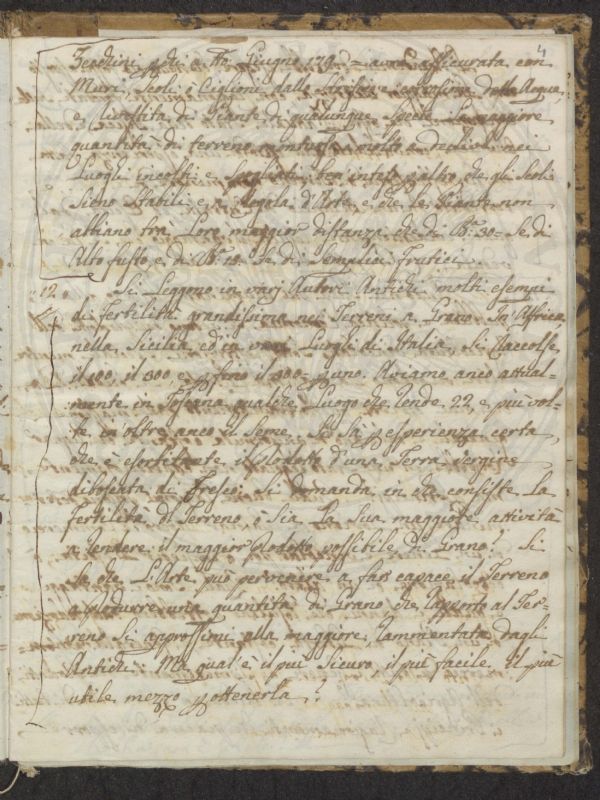 4
Zecchini
Giugno 179 = avrà assicurata con
Muri, Scoli, o Ciglioni dalle
delle Acque,
e rivestita di Piante di qualunque Specie La maggiore
quantità di terreno montuoso molto a declive nei
Luoghi incolti e ben inteso altro che gli Scoli
Sieno Stabili e a Regola d'Arte e che le Piante non
abbiano tra Loro maggior distanza che di Bᵃ 30= Se di
Alto fusto e di Bᵃ 10= Se di Semplici frutici.
12. Si Leggono in varj Autori Antichi molti esempi
di fertilità grandissima nei Terreni a Grano. In Affrica
nella Sicilia ed in varj Luoghi di Italia, Si Raccolse
il 100, il 300 e fino il 300 uno. Abiamo anco attual=
mente in Toscana qualche Luogo che rende 22, e più vol=
te in oltre anco il Seme. Si Sà p esperienza certa,
che è esorbitante il Prodotto d'una Terra vergine
diboscata di fresco. Si domanda in che consiste La
Fertilità di Terreno, o Sia La Sua maggiore attività
a rendere il maggior Prodotto possibile di Grano? Si
Sa che L'Arte può pervenire a far capace il Terreno
a produrre una quantità di Grano che rapporto al Ter=
reno Si approssimi alla maggiore, rammentata dagli
Antichi: Ma qual'è il più Sicuro, il più facile, il più
utile mezzo p ottenerla?